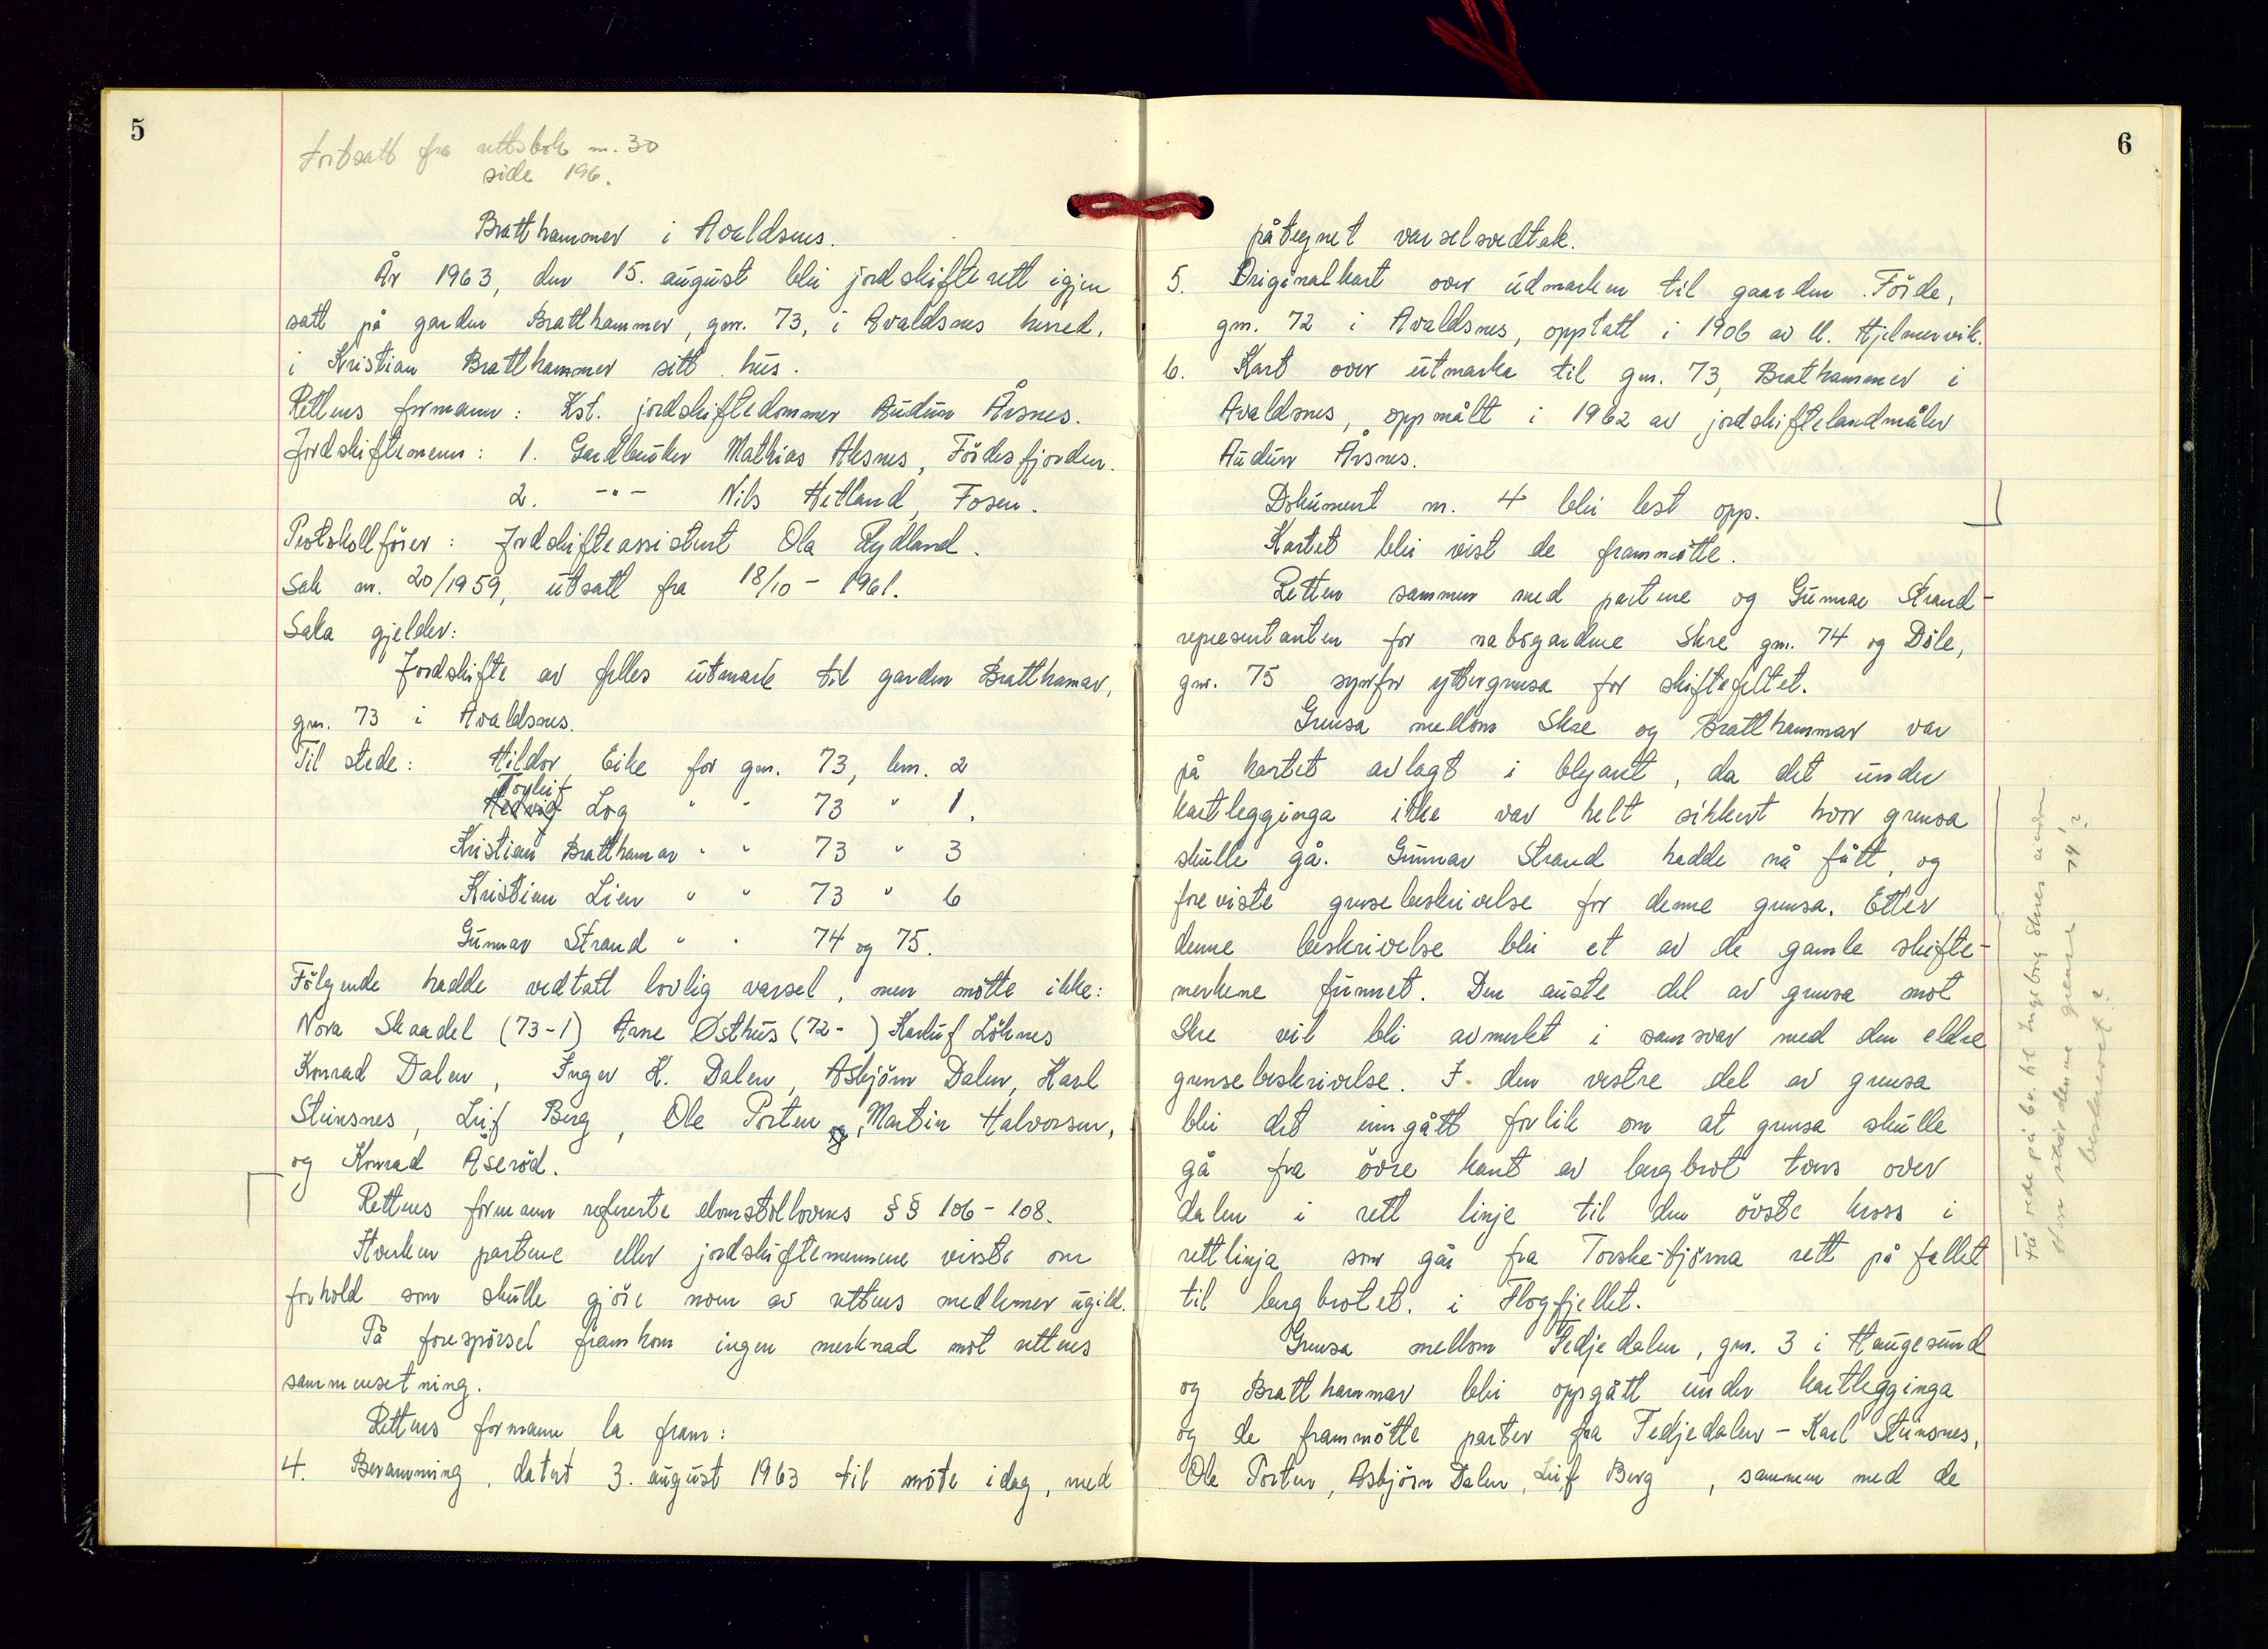 5
Fortsatt fra rettsbok nr. 30
side 196.
Bratthammer i Avaldsnes.
År 1963, den 15. august blei jordskifterett igjen
satt på garden Bratthammer, gnr. 73, i Avaldsnes herred,
i Kristian Bratthammer sitt hus.
Rettens formann: Kst. jordskiftedommer Audun Årsnes.
Jordskiftemenn: 1. Gardbruker Mathias Aksnes, Fördesfjorden.
2. -"- Nils Hetland, Fosen.
Protokollförer: Jordskifteassistent Ola Rydland.
Sak nr. 20/1959, utsatt fra 18/10 - 1961.
Saka gjelder:
Jordskifte av felles utmark til garden Bratthamar,
gnr. 73 i Avaldsnes.
Til stede: Hildor Eike for gnr. 73, bnr. 2
Torleif
Log " " 73 " 1.
Kristian Bratthamar " " 73 " 3
Kristian Lien " " 73 " 6
Gunnar Strand " " 74 og 75.
Fölgende hadde vedtatt lovlig varsel, men mötte ikke:
Nora Skaadel (73-1) Arne Østhus (72- ) Karluf Löknes
Konrad Dalen, Inger K. Dalen, Asbjörn Dalen, Karl
Steinsnes, Leif Berg, Ole Porten, Martin Halvorsen,
og Konrad Åseröd.
Rettens formann refererte domstollovens §§ 106 - 108.
Hverken partene eller jordskiftemennene visste om
forhold som skulle gjöre noen av rettens medlemer ugild.
På forespörsel framkom ingen merknad mot rettens
sammensetning.
Rettens formann la fram:
4. Beramming, datert 3. august 1963 til möte idag, med
6
påtegnet varselsvedtak.
5. Originalkart over udmarken til gaarden Förde,
gnr. 72 i Avaldsnes, opptatt i 1906 av U. Hjelmervik.
6. Kart over utmarka til gnr. 73, Brathammer i
Avaldsnes, oppmålt i 1962 av jordskiftelandmåler
Audun Årsnes.
Dokument nr. 4 blei lest opp.
Kartet blei vist de frammötte.
Retten sammen med partene og Gunnar Strand -
representanten for nabogardene Skre gnr. 74 og Döle,
gnr. 75 synfor yttergrensa for skiftefeltet.
Grensa mellom Skre og Bratthammar var
på kartet avlagt i blyant, da det under
kartlegginga ikke var helt sikkert hvor grensa
skulle gå. Gunnar Strand hadde nå fått, og
foreviste grensebeskrivelse for denne grensa. Etter
denne beskrivelse blei et av de gamle skifte-
merkene funnet. Den auste del av grensa mot
Skre vil bli avmerket i samsvar med den eldre
grensebeskrivelse. I den vestre del av grensa
blei det inngått forlik om at grensa skulle
gå fra övre kant av bergbrot tvers over
dalen i rett linje til den övste kross i
rettlinja som går fra Torske-tjörna rett på fallet
til bergbrotet i Flogfjellet.
Grensa mellom Fedjedalen, gnr. 3 i Haugesund
og Bratthammar blei oppgått under kartlegginga
og de frammötte parter fra Fedjedalen - Karl Steinsnes,
Ole Porten, Asbjörn Dalen, Leif Berg, sammen med de
Få rede på br. til Ingeborg Skres
står denne grense 74'?
beskrevet?